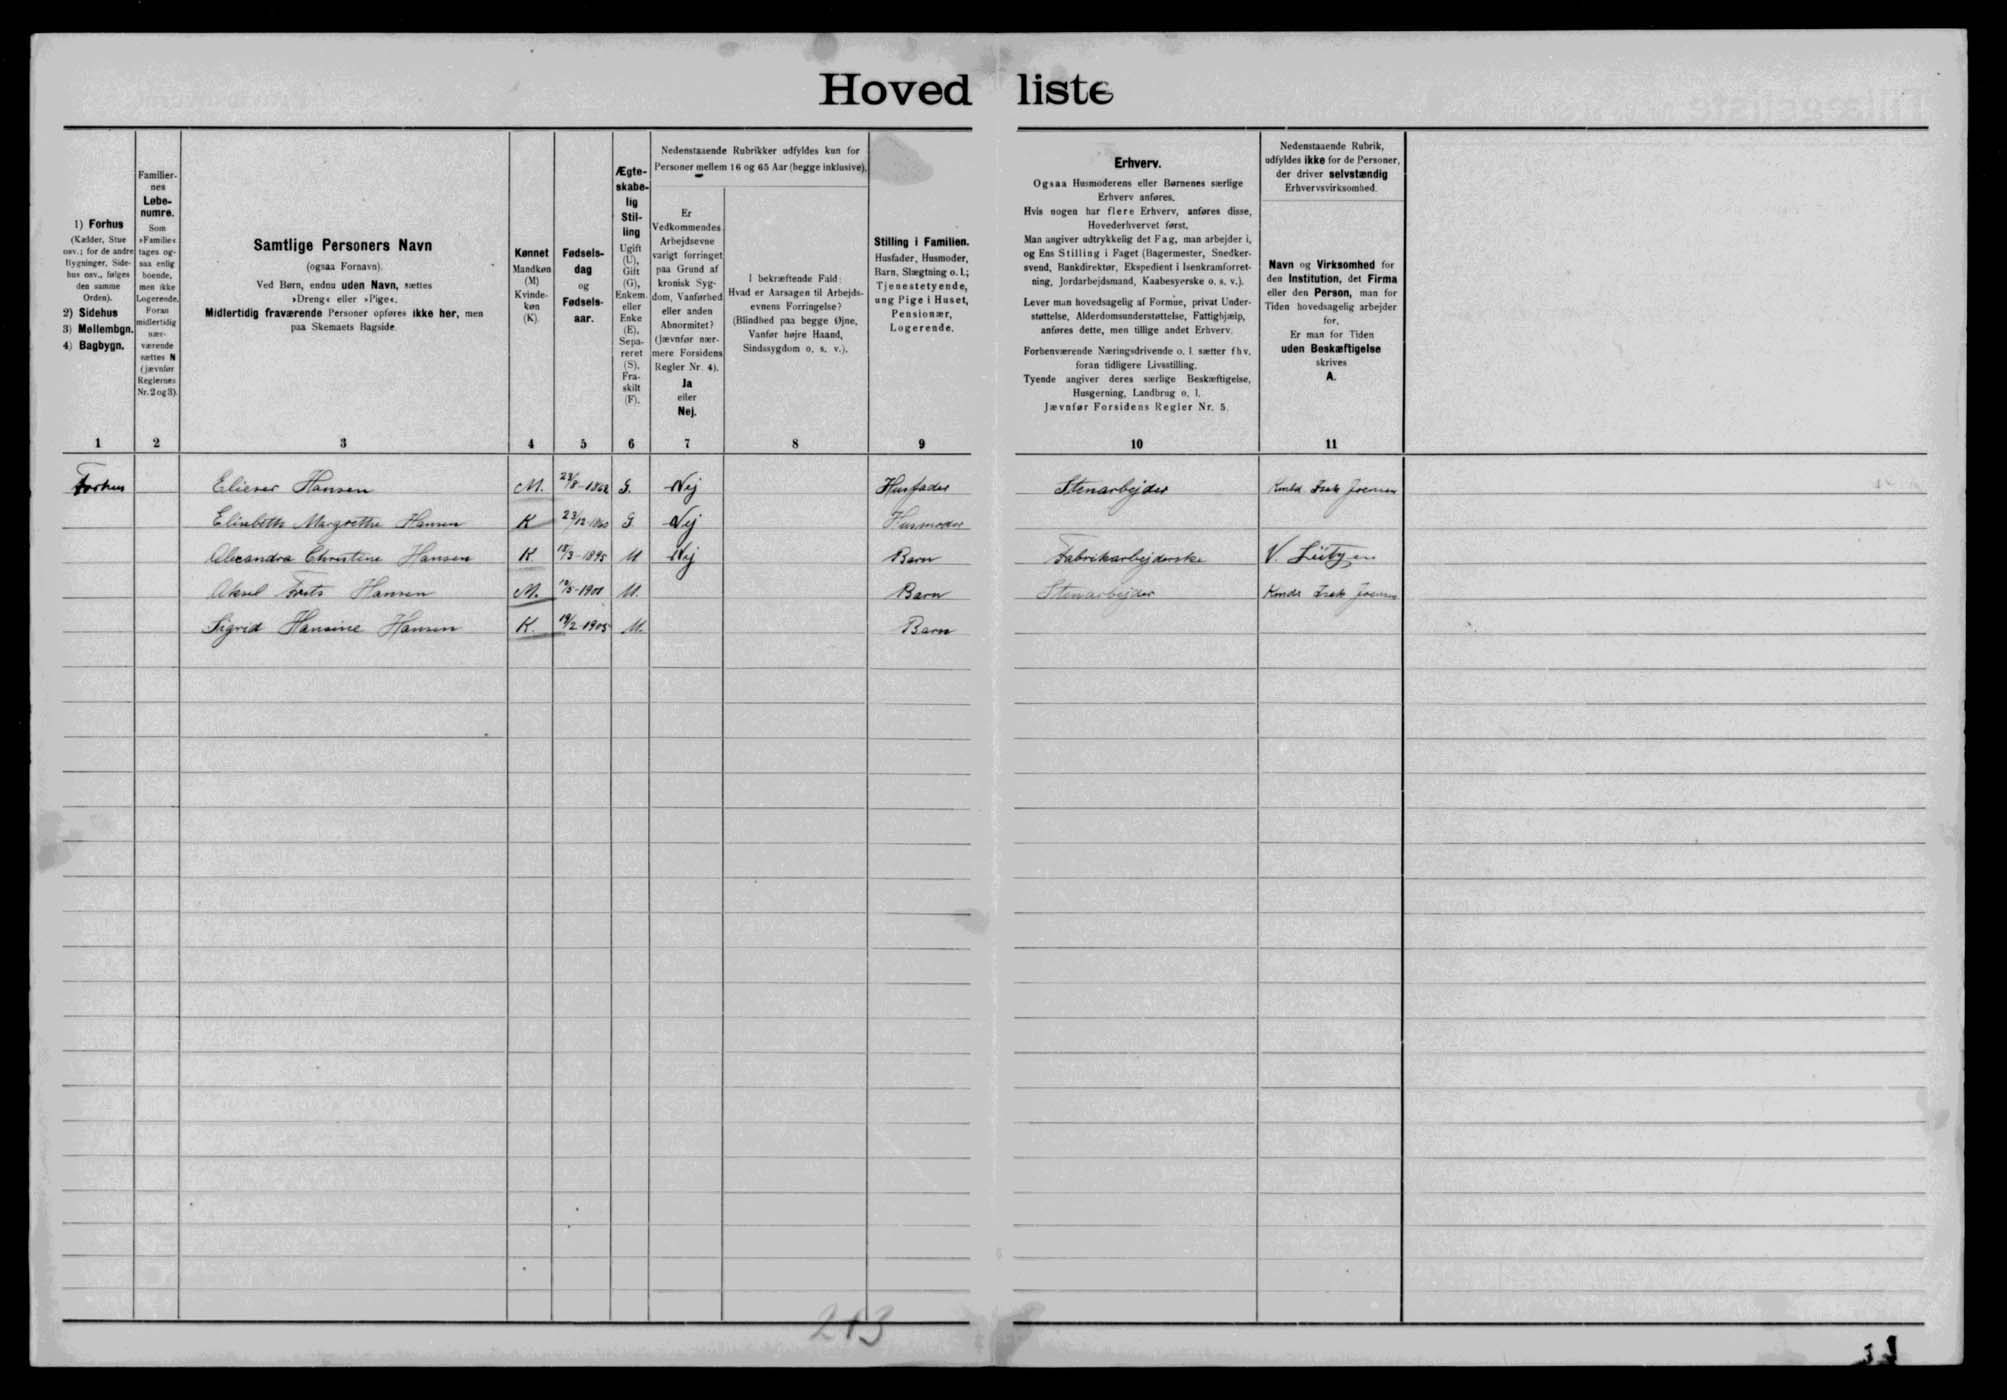 Hovedliste
1) Forhus
(Kælder, Stue
osv.; for de andre
Bygninger, Side-
hus osv., følges
den samme
Orden).
2) Sidehus
3) Mellembgn.
4) Bagbygn.
Familier-
nes
Løbe-
numre.
Som
»Familie«
tages og-
saa enlig
boende,
men ikke
Logerende.
Foran
midlertidig
nær-
værende
sættes N
(jævnfør
Reglernes
Nr. 2 og 3).
Samtlige Personers Navn
(ogsaa Fornavn).
Ved Børn, endnu uden Navn, sættes
»Dreng« eller »Pige«.
Midlertidig fraværende Personer opføres ikke her, men
paa Skemaets Bagside.
Kønnet
Mandkøn
(M)
Kvinde-
køn
(K).
Fødsels-
dag
og
Fødsels-
aar.
Ægte-
skabe-
lig
Stil-
ling
Ugift
(U),
Gift
(G),
Enkem.
eller
Enke
(E),
Sepa-
reret
(S),
Fra-
skilt
(F).
Nedenstaaende Rubrikker udfyldes kun for
Personer mellem 16 og 65 Aar (begge inklusive).
Er
Vedkommendes
Arbejdsevne
varigt forringet
paa Grund af
kronisk Syg-
dom, Vanførhed
eller anden
Abnormitet?
(Jævnfør nær-
mere Forsidens
Regler Nr. 4).
Ja
eller
Nej.
I bekræftende Fald:
Hvad er Aarsagen til Arbejds-
evnens Forringelse?
(Blindhed paa begge Øjne,
Vanfør højre Haand,
Sindssygdom o. s. v.).
Stilling i Familien.
Husfader, Husmoder,
Barn, Slægtning o. l.;
Tjenestetyende,
ung Pige i Huset,
Pensionær,
Logerende.
Erhverv.
Ogsaa Husmoderens eller Børnenes særlige
Erhverv anføres.
Hvis nogen har flere Erhverv, anføres disse,
Hovederhvervet først.
Man angiver udtrykkelig det Fag, man arbejder i,
og Ens Stilling i Faget (Bagermester, Snedker-
svend, Bankdirektør, Ekspedient i Isenkramforret-
ning, Jordarbejdsmand, Kaabesyerske o. s. v.).
Lever man hovedsagelig af Formue, privat Under-
støttelse, Alderdomsunderstøttelse, Fattighjælp,
anføres dette, men tillige andet Erhverv.
Forhenværende Næringsdrivende o. l. sætter fhv.
foran tidligere Livsstilling.
Tyende angiver deres særlige Beskæftigelse,
Husgerning, Landbrug o. l.
Jævnfør Forsidens Regler Nr. 5.
Nedenstaaende Rubrik,
udfyldes ikke for de Personer,
der driver selvstændig
Erhvervsvirksomhed.
Navn og Virksomhed for
den Institution, det Firma
eller den Person, man for
Tiden hovedsagelig arbejder
for.
Er man for Tiden
uden Beskæftigelse
skrives
A.
1 2 3 4 5 6 7 8 9 10 11
Forhus Elieser Hansen M. G. Nej Husfader Stenarbejder
Elisabeth Margrethe Hansen K G Nej Husmoder
Alexandra Christine Hansen K 1895 U Nej Barn Fabrikarbejderske V.
Aksel Frits Hansen M. U. Barn Stenarbejder
Sigrid Hansine Hansen K. 19/2-1905 U. Barn
213